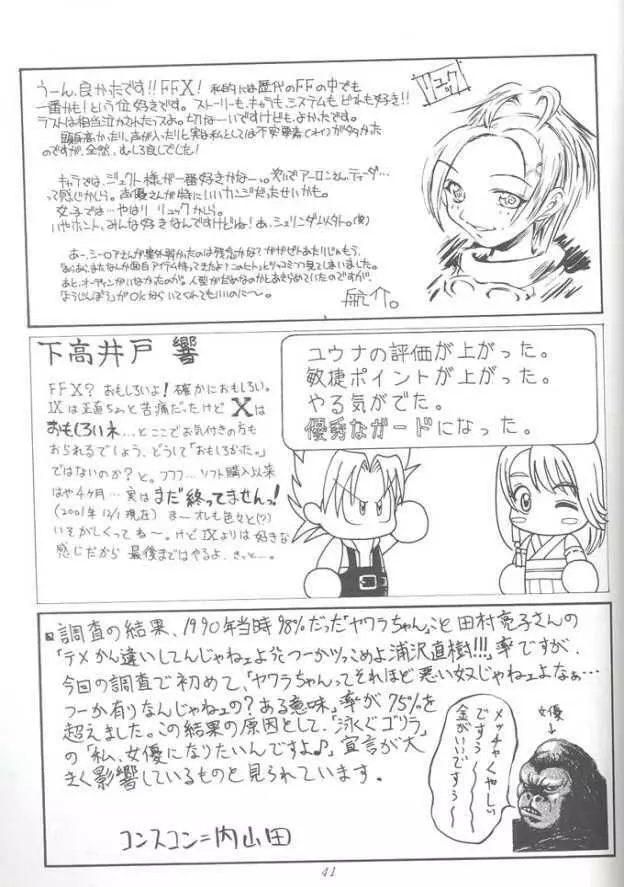 うーん、良かったです!! FFX! 私的には歴代のFFの中でも
一番かも!という位好きです。ストーリーも、キャラも、システムも、ビボも好き!!
ラストは相当泣かされたっスよ。切なーいですけども、よかったです。
頭身高かったり、声が入ったりと実は私としては不安要素(くわっ)が多かった
のですが、全然、むしろ良しでした!
キャラでは、ジェクト様が一番好きかな~。次いでアーロンさん、ティーダ…
って感じかしら。声優さんが特にいいカンジだったせいかも。
女子では…やはり リュックかしら。
いやホント、みんな好きなんですけどね! あ、シェリンダ以外。(笑)
リュック
下高井戸 響
FFX? おもしろいよ! 確かにおもしろい。
IXは正直ちょっと苦痛だったけど Xは
おもしろいネ…とここでお気付きの方も
おられるでしょう、どうして「おもしろかった。」
ではないのか? と。フフフ…ソフト購入以来
はや4ヶ月…実はまだ終ってませんっ!
(2001年12/1現在) ま~オレも色々と(?)
いそがしくってね~。けどIXよりは好きな
感じだから 最後まではやるよ、きっと…。
ユウナの評価が上がった。
敏捷ポイントが上がった。
やる気がでた。
優秀なガードになった。
調査の結果、1990年当時98%だった「ヤワラちゃん」こと田村亮子さんの
「テメかん違いしてんじゃねェよ!つーかツッこめよ浦沢直樹!!!」率ですが、
今回の調査で初めて、「ヤワラちゃんってそれほど悪い奴じゃねェよなぁ…
つーか有りなんじゃねェの?ある意味」率が75%を
超えました。この結果の原因として、「泳ぐゴリラ」
の「私、女優になりたいんですよ♪」宣言が大
きく影響しているものと見られています。
コンスコン=内山田
メッチャくやしい
ですぅ~
金がいいですぅ~
女優
41